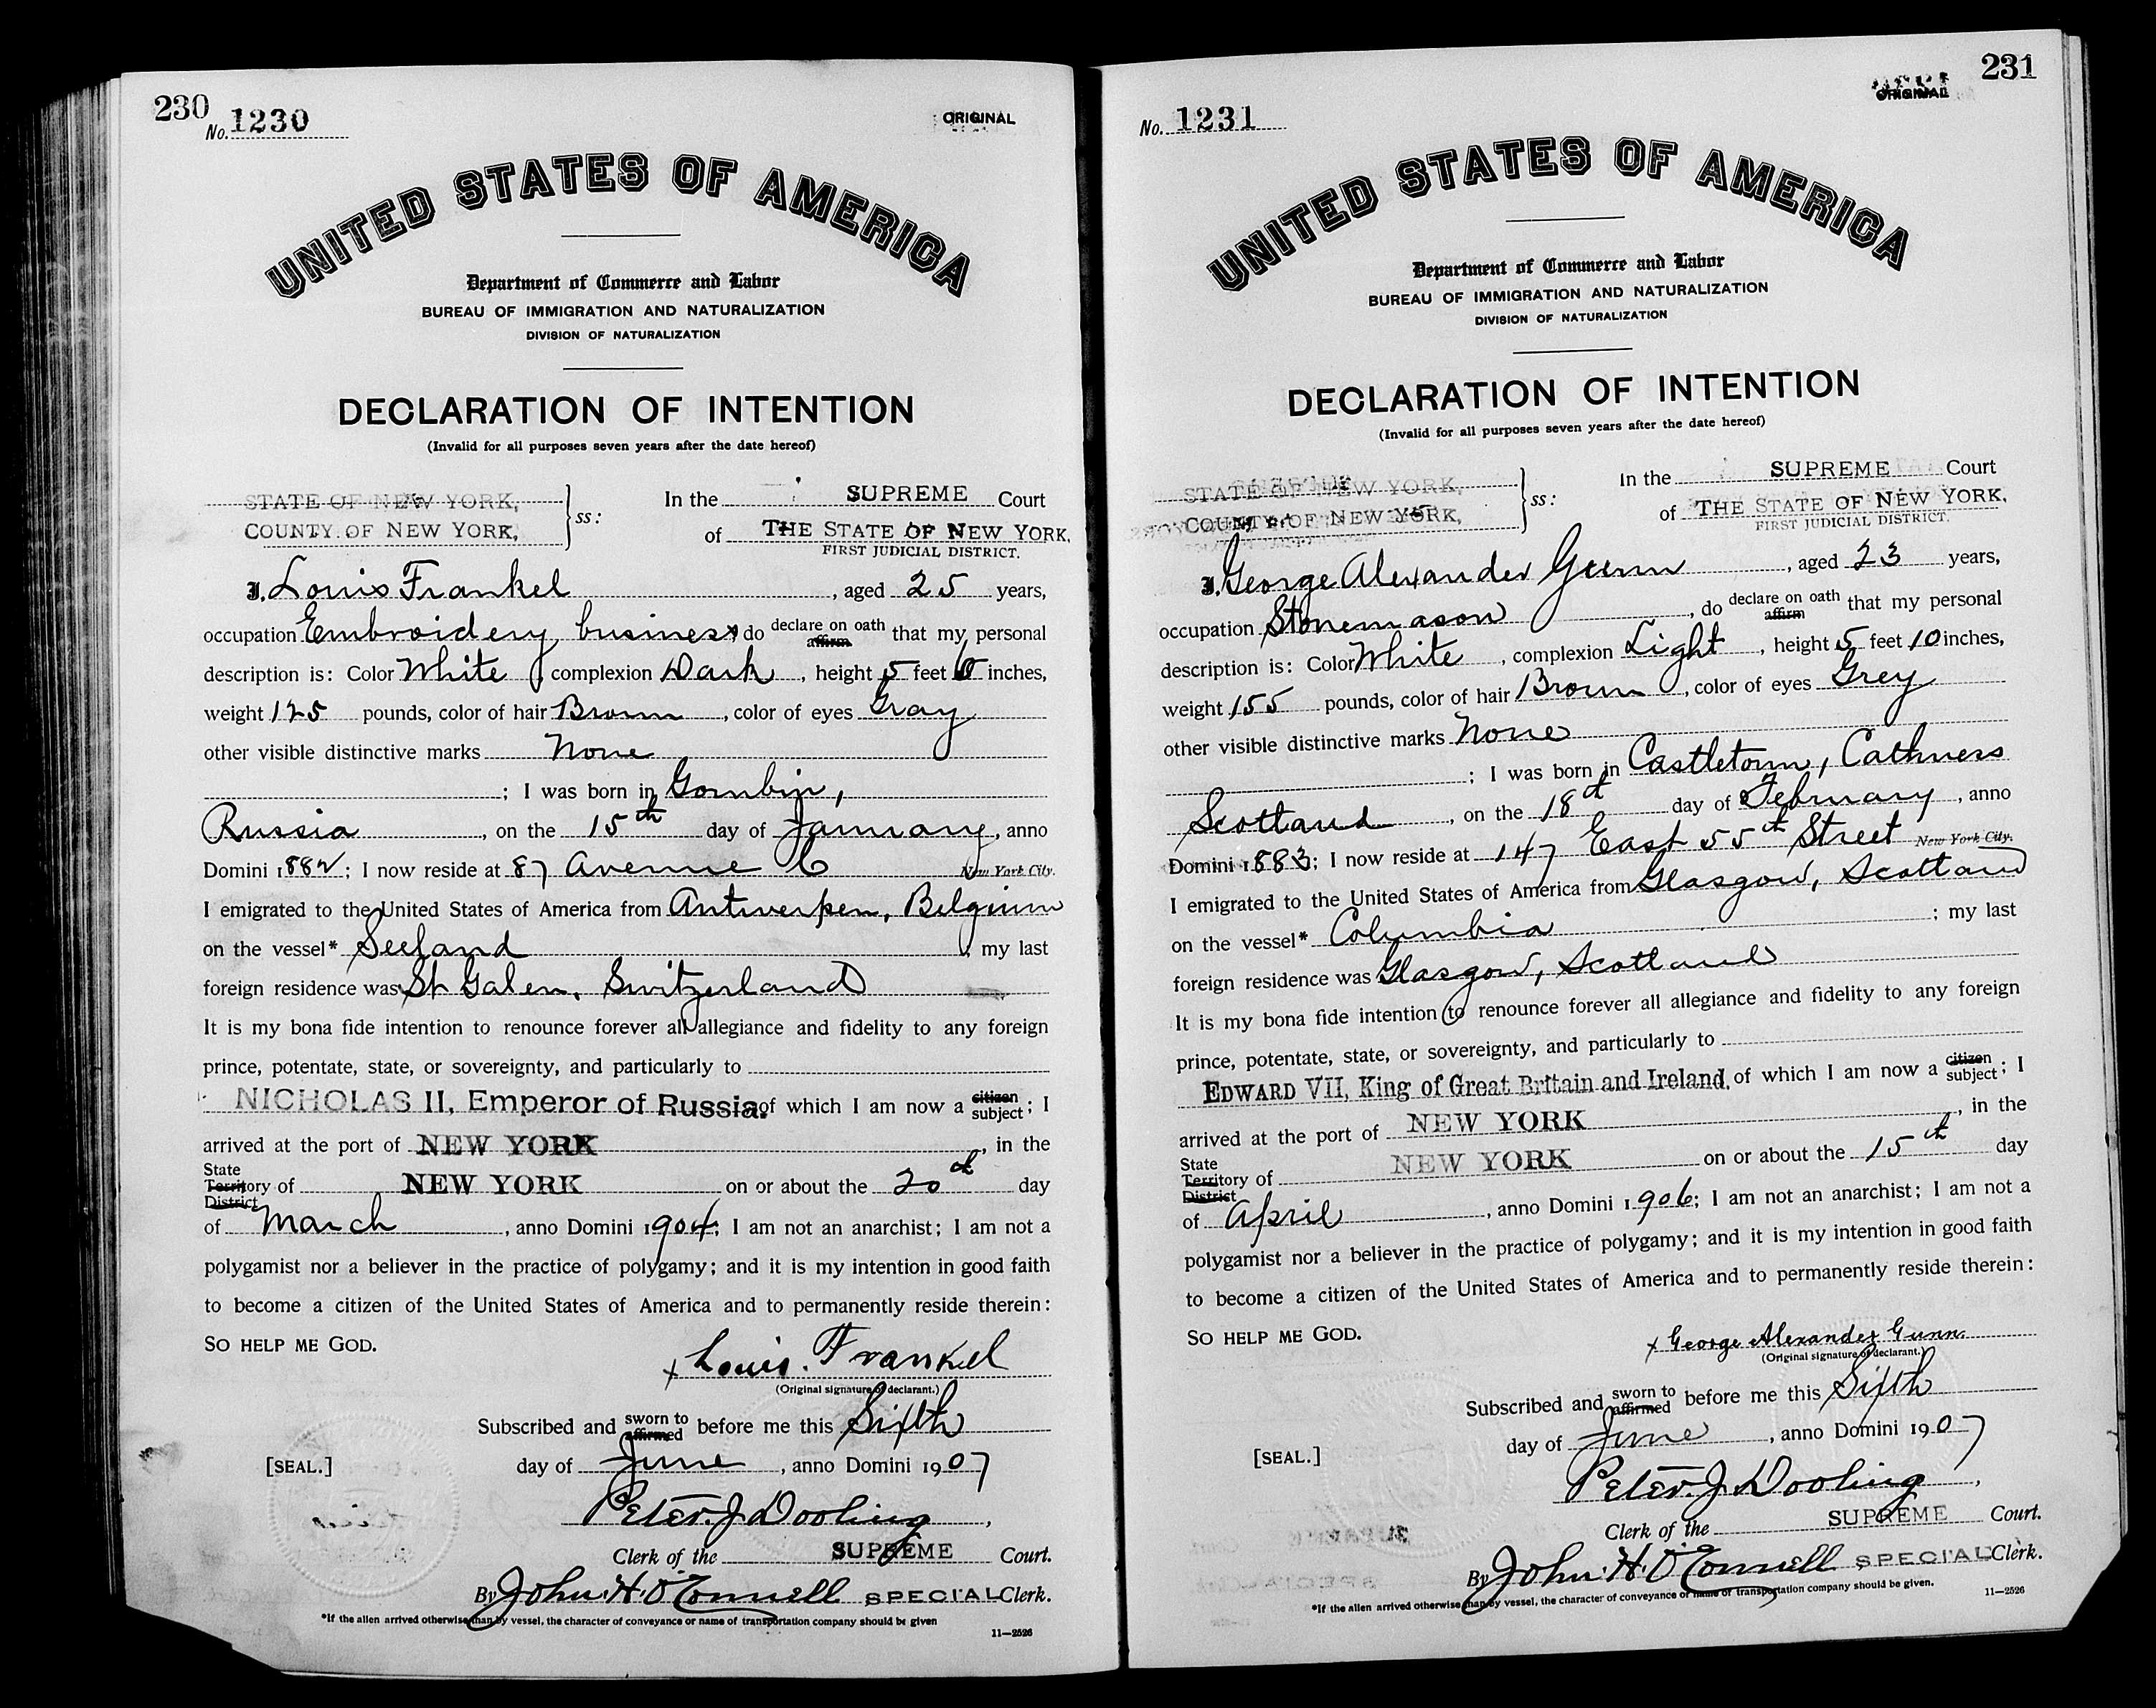 230
No. 1230
ORIGINAL
UNITED STATES OF AMERICA
Department of Commerce and Labor
BUREAU OF IMMIGRATION AND NATURALIZATION
DIVISION OF NATURALIZATION
DECLARATION OF INTENTION
(Invalid for all purposes seven years after the date hereof)
STATE OF NEW YORK,
COUNTY OF NEW YORK,
ss:
In the SUPREME Court
of THE STATE OF NEW YORK.
FIRST JUDICIAL DISTRICT.
I, Louis Frankel, aged 25 years,
occupation Embroidery business, do declare on oath affirm that my personal
description is: Color White, complexion Dark, height 5 feet 6 inches,
weight 125 pounds, color of hair Brown, color of eyes Gray
other visible distinctive marks None
; I was born in Gombin,
Russia, on the 15th day of January, anno
Domini 1882; I now reside at 87 Avenue C New York City.
I emigrated to the United States of America from Antwerpen, Belgium
on the vessel* Seeland; my last
foreign residence was St Galen, Switzerland
It is my bona fide intention to renounce forever all allegiance and fidelity to any foreign
prince, potentate, state, or sovereignty, and particularly to
NICHOLAS II, Emperor of Russia. of which I am now a citizen subject; I
arrived at the port of NEW YORK, in the
State Territory District of NEW YORK on or about the 20th day
of March, anno Domini 1904; I am not an anarchist; I am not a
polygamist nor a believer in the practice of polygamy; and it is my intention in good faith
to become a citizen of the United States of America and to permanently reside therein:
SO HELP ME GOD.
x Louis. Frankel
(Original signature of declarant.)
Subscribed and sworn to affirmed before me this Sixth
[SEAL.]
day of June, anno Domini 1907
Peter. J. Dooling,
Clerk of the SUPREME Court.
By John. H. O'Connell SPECIAL Clerk.
*If the alien arrived otherwise than by vessel, the character of conveyance or name of transportation company should be given
11—2526
231
No. 1231
ORIGINAL
UNITED STATES OF AMERICA
Department of Commerce and Labor
BUREAU OF IMMIGRATION AND NATURALIZATION
DIVISION OF NATURALIZATION
DECLARATION OF INTENTION
(Invalid for all purposes seven years after the date hereof)
STATE OF NEW YORK,
COUNTY OF NEW YORK,
ss:
In the SUPREME Court
of THE STATE OF NEW YORK.
FIRST JUDICIAL DISTRICT.
I, George Alexander Gunn, aged 23 years,
occupation Stonemason, do declare on oath affirm that my personal
description is: Color White, complexion Light, height 5 feet 10 inches,
weight 155 pounds, color of hair Brown, color of eyes Grey
other visible distinctive marks None
; I was born in Castletown, Cathness
Scotland, on the 18th day of February, anno
Domini 1883; I now reside at 147 East 55th Street New York City.
I emigrated to the United States of America from Glasgow, Scotland
on the vessel* Columbia; my last
foreign residence was Glasgow, Scotland
It is my bona fide intention to renounce forever all allegiance and fidelity to any foreign
prince, potentate, state, or sovereignty, and particularly to
EDWARD VII, King of Great Britain and Ireland, of which I am now a citizen subject; I
arrived at the port of NEW YORK, in the
State Territory District of NEW YORK on or about the 15th day
of April, anno Domini 1906; I am not an anarchist; I am not a
polygamist nor a believer in the practice of polygamy; and it is my intention in good faith
to become a citizen of the United States of America and to permanently reside therein:
SO HELP ME GOD.
x George Alexander Gunn.
(Original signature of declarant.)
Subscribed and sworn to affirmed before me this Sixth
[SEAL.]
day of June, anno Domini 1907
Peter. J. Dooling,
Clerk of the SUPREME Court.
By John. H. O'Connell SPECIAL Clerk.
*If the alien arrived otherwise than by vessel, the character of conveyance or name of transportation company should be given.
11—2526